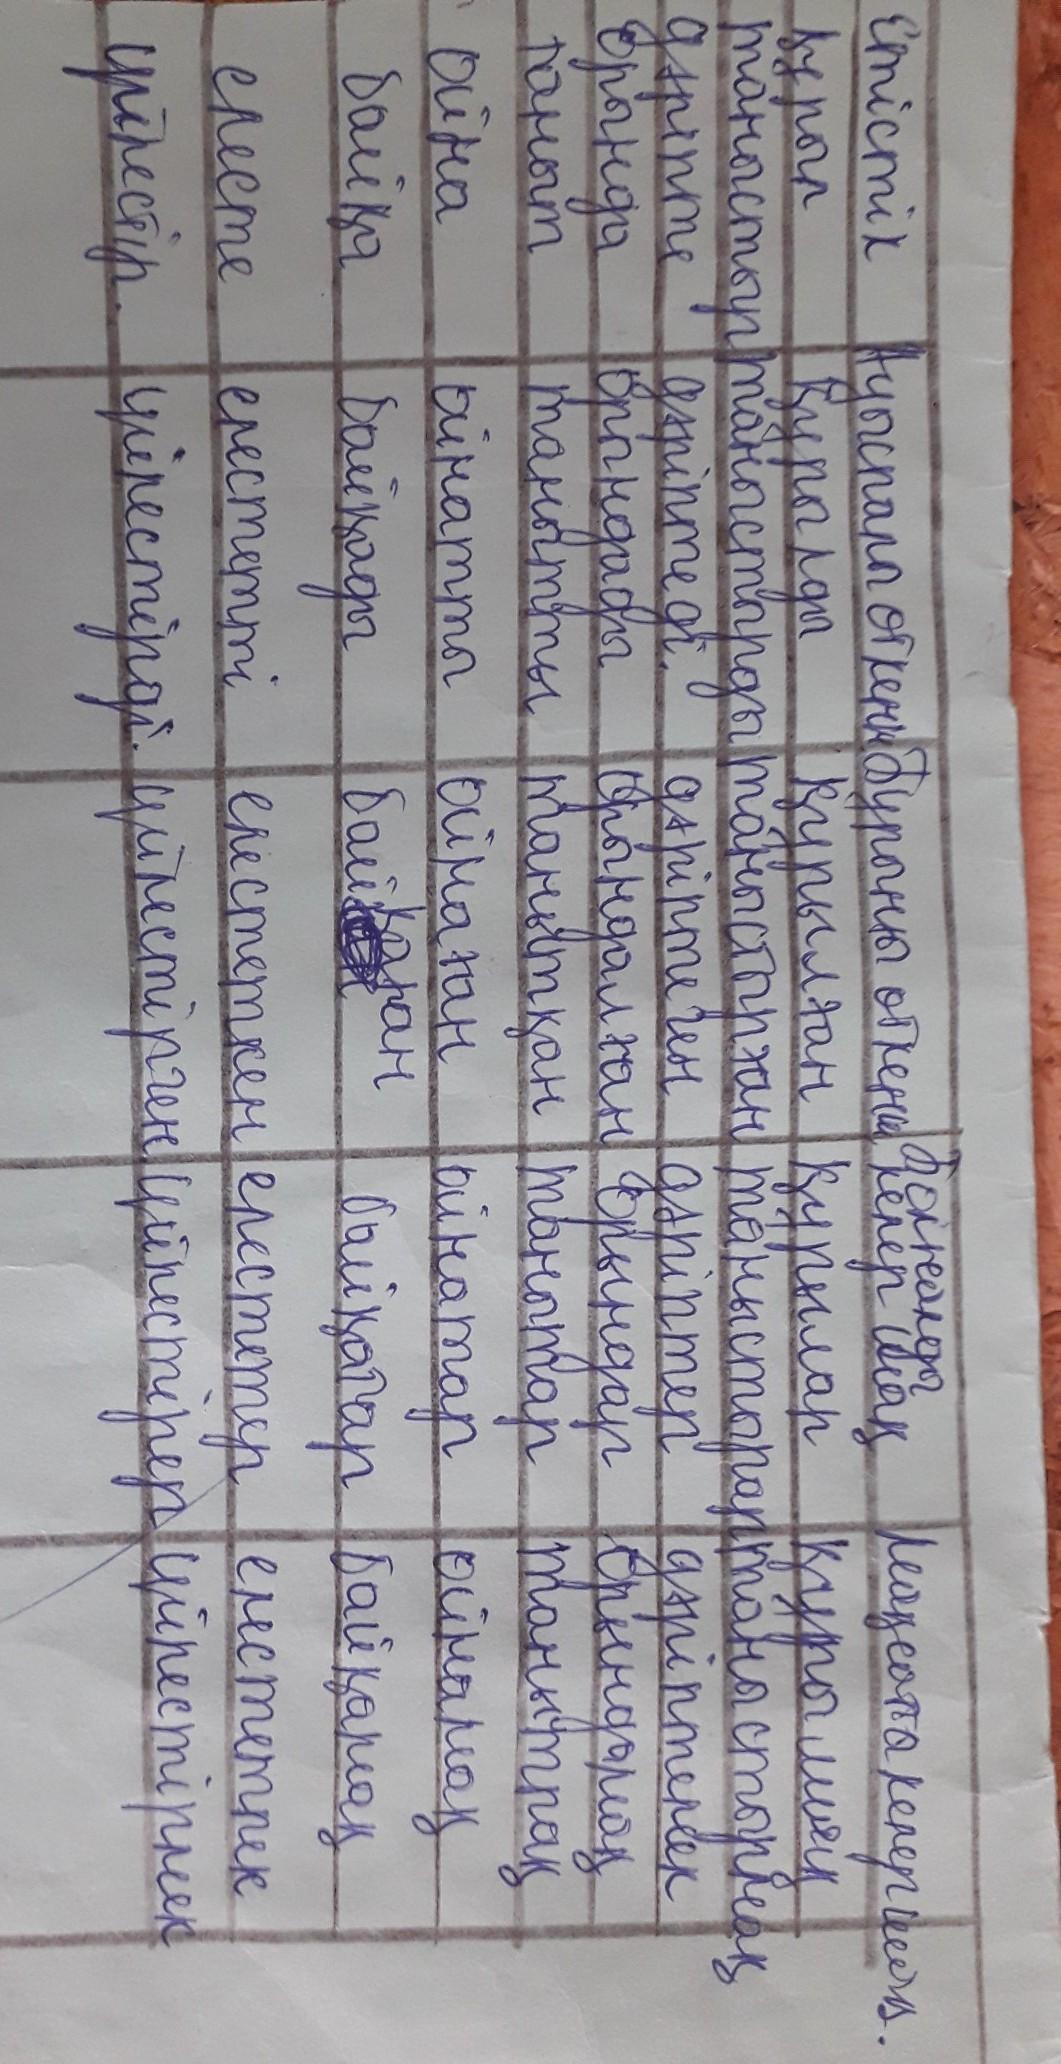 Етістік Ауыспалы өткен бұрынғы өткен болжалды келер шақ мақсатты келер шақ.
құрыл құрылды құрылған құрылар құрылмақ
таныстыр таныстырды таныстырған таныстырар таныстырмақ
дәріпте дәріптеді. дәріптеген дәріптер дәріптемек
орында орындады орындалған орындар орындамақ
таныт танытты танытқан танытар танытпақ
ойна ойнатты ойнаған ойнатар ойнамақ
байқа байқады байқаған байқатар байқамақ
елесте елестетті елестеткен елестетер елестетпек
үйлестір. үйлестірді. үйлестірген үйлестірер үйлестірмек